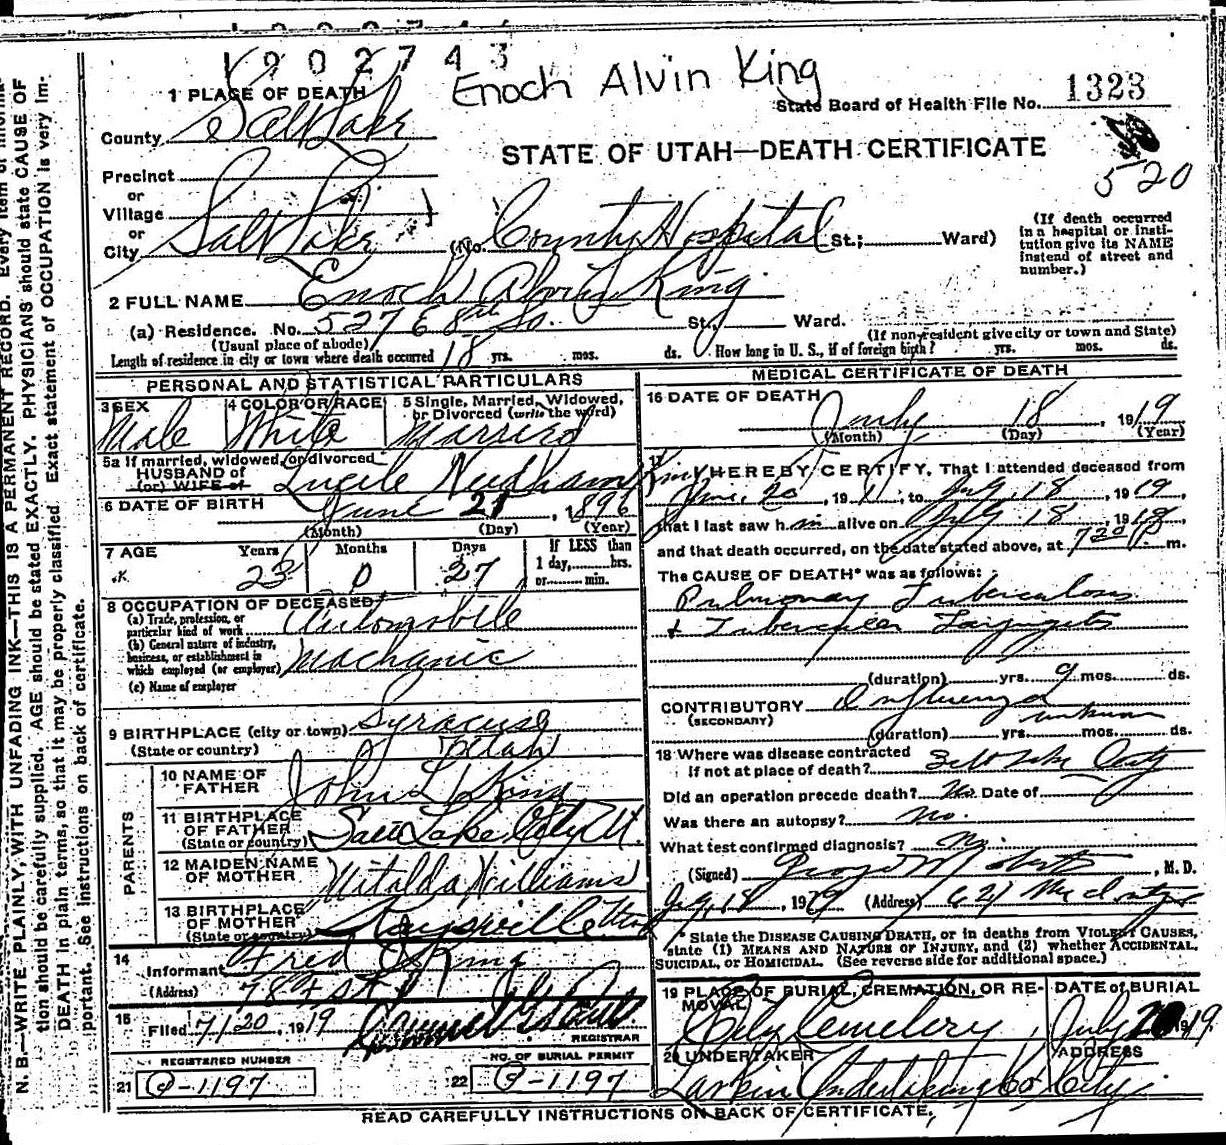 1902743
Enoch Alvin King
1 PLACE OF DEATH
State Board of Health File No. 1323
County Salt Lake
STATE OF UTAH—DEATH CERTIFICATE
520
Precinct
or
Village
or
City Salt Lake (No. County Hospital St.; Ward)
(If death occurred in a hospital or institution give its NAME instead of street and number.)
2 FULL NAME Enoch Alvin King
(a) Residence. No. 527 E 8th So. St., Ward.
(Usual place of abode) (If non-resident give city or town and State)
Length of residence in city or town where death occurred 18 yrs. mos. ds. How long in U. S., if of foreign birth? yrs. mos. ds.
PERSONAL AND STATISTICAL PARTICULARS
3 SEX 4 COLOR OR RACE 5 Single, Married, Widowed, or Divorced (write the word)
Male White Married
5a If married, widowed, or divorced
HUSBAND of
(or) WIFE of Lucile Needham King
6 DATE OF BIRTH June 21, 1896
(Month) (Day) (Year)
7 AGE Years Months Days If LESS than
1 day, hrs.
or min.
23 0 27
8 OCCUPATION OF DECEASED
(a) Trade, profession, or particular kind of work Automobile
(b) General nature of industry, business, or establishment in which employed (or employer) Machanic
(c) Name of employer
9 BIRTHPLACE (city or town) Syracuse
(State or country) Utah
PARENTS
10 NAME OF FATHER John L King
11 BIRTHPLACE OF FATHER (State or country) Salt Lake City Ut.
12 MAIDEN NAME OF MOTHER Mitalda Williams
13 BIRTHPLACE OF MOTHER (State or country) Kaysville Utah
14 Informant Fred King
(Address) 78
15 Filed 7/20, 1919
REGISTRAR
REGISTERED NUMBER NO. OF BURIAL PERMIT
21 P-1197 22 P-1197
MEDICAL CERTIFICATE OF DEATH
16 DATE OF DEATH July 18, 1919
(Month) (Day) (Year)
I HEREBY CERTIFY, That I attended deceased from
June 20, 191, to July 18, 1919
that I last saw him alive on July 18, 191
and that death occurred, on the date stated above, at 7 20 P m.
The CAUSE OF DEATH* was as follows:
Pulmonary Tuberculosis
+ Tubercular Laryngitis
(duration) yrs. 9 mos. ds.
CONTRIBUTORY Influenza
(SECONDARY)
unknown
(duration) yrs. mos. ds.
18 Where was disease contracted
if not at place of death? Salt Lake City
Did an operation precede death? No. Date of
Was there an autopsy? no.
What test confirmed diagnosis?
(Signed) George M Roberts, M. D.
July 18, 1919 (Address) 621 McIntyre
* State the DISEASE CAUSING DEATH, or in deaths from VIOLENT CAUSES, state (1) MEANS AND NATURE OF INJURY, and (2) whether ACCIDENTAL, SUICIDAL, or HOMICIDAL. (See reverse side for additional space.)
19 PLACE OF BURIAL, CREMATION, OR REMOVAL DATE of BURIAL
City Cemetery, July 20 1919
20 UNDERTAKER ADDRESS
Larkin Undertaking Co City.
READ CAREFULLY INSTRUCTIONS ON BACK OF CERTIFICATE.
N. B.—WRITE PLAINLY, WITH UNFADING INK—THIS IS A PERMANENT RECORD. Every item of information should be carefully supplied. AGE should be stated EXACTLY. PHYSICIANS should state CAUSE OF DEATH in plain terms, so that it may be properly classified. Exact statement of OCCUPATION is very important. See instructions on back of certificate.